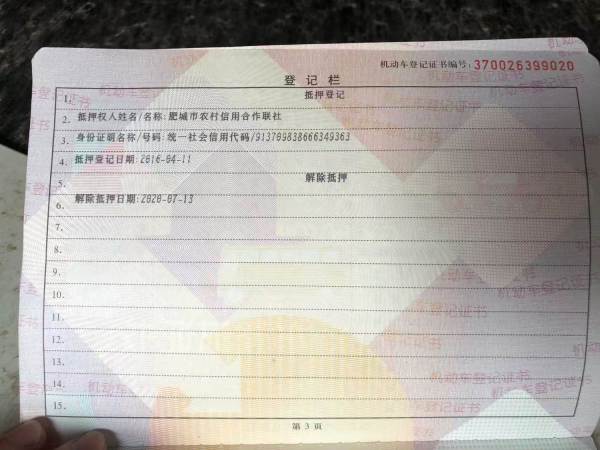 机动车登记证书编号:370026399020
登记栏
1. 抵押登记
2. 抵押权人姓名/名称:肥城市农村信用合作联社
3. 身份证明名称/号码:统一社会信用代码/913709838666349363
4. 抵押登记日期:2016-04-11
5. 解除抵押
6. 解除抵押日期:2020-07-13
7.
8.
9.
10.
11.
12.
13.
14.
15.
第 3 页